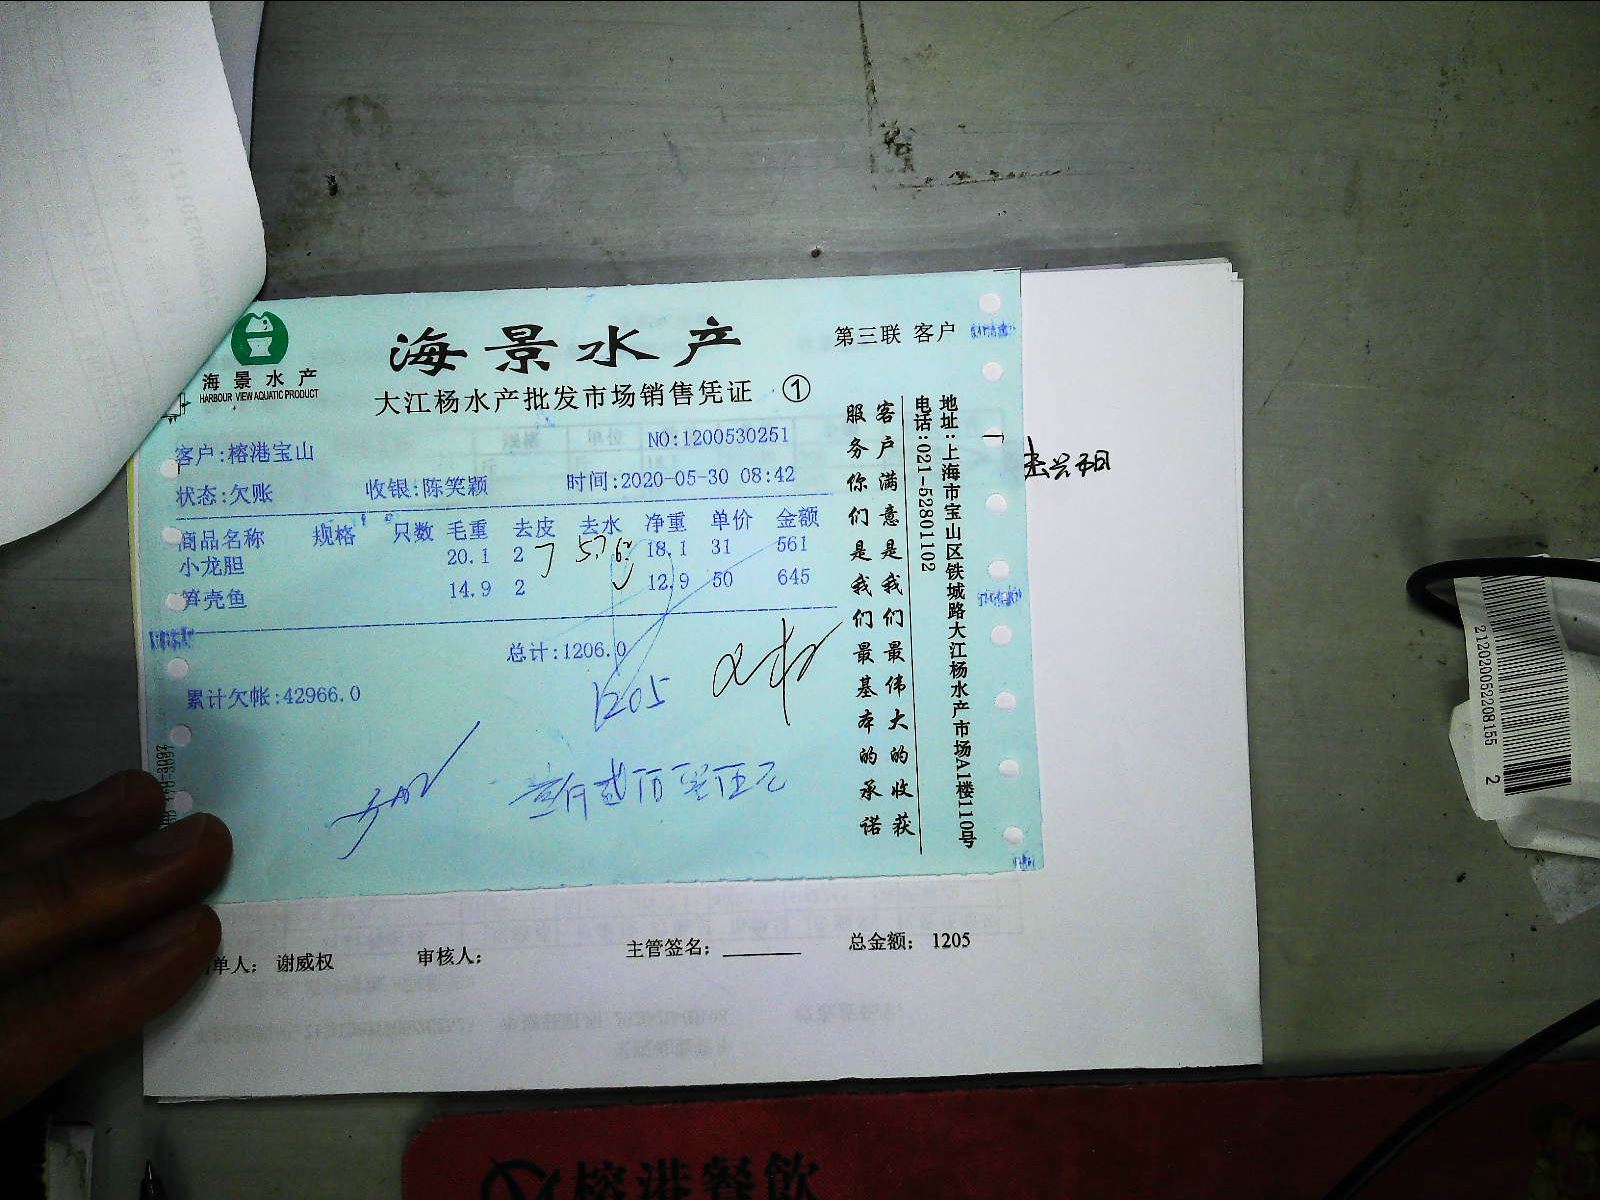 海景水产
HARBOUR VIEW AQUATIC PRODUCT
海景水产
第三联 客户
大江杨水产批发市场销售凭证 ①
客户:榕港宝山
NO:1200530251
状态:欠账 收银:陈笑颖 时间:2020-05-30 08:42
商品名称 规格 只数 毛重 去皮 去水 净重 单价 金额
小龙胆 20.1 2 18.1 31 561
笋壳鱼 14.9 2 12.9 50 645
总计:1206.0
累计欠帐:42966.0
1205
壹仟贰佰零伍元
客户满意是我们最伟大的收获
服务你们是我们最基本的承诺
地址:上海市宝山区铁城路大江杨水产市场A1楼110号
电话:021-52801102
单人: 谢威权 审核人: 主管签名: 总金额: 1205
2112020052208155 2
榕港餐飲